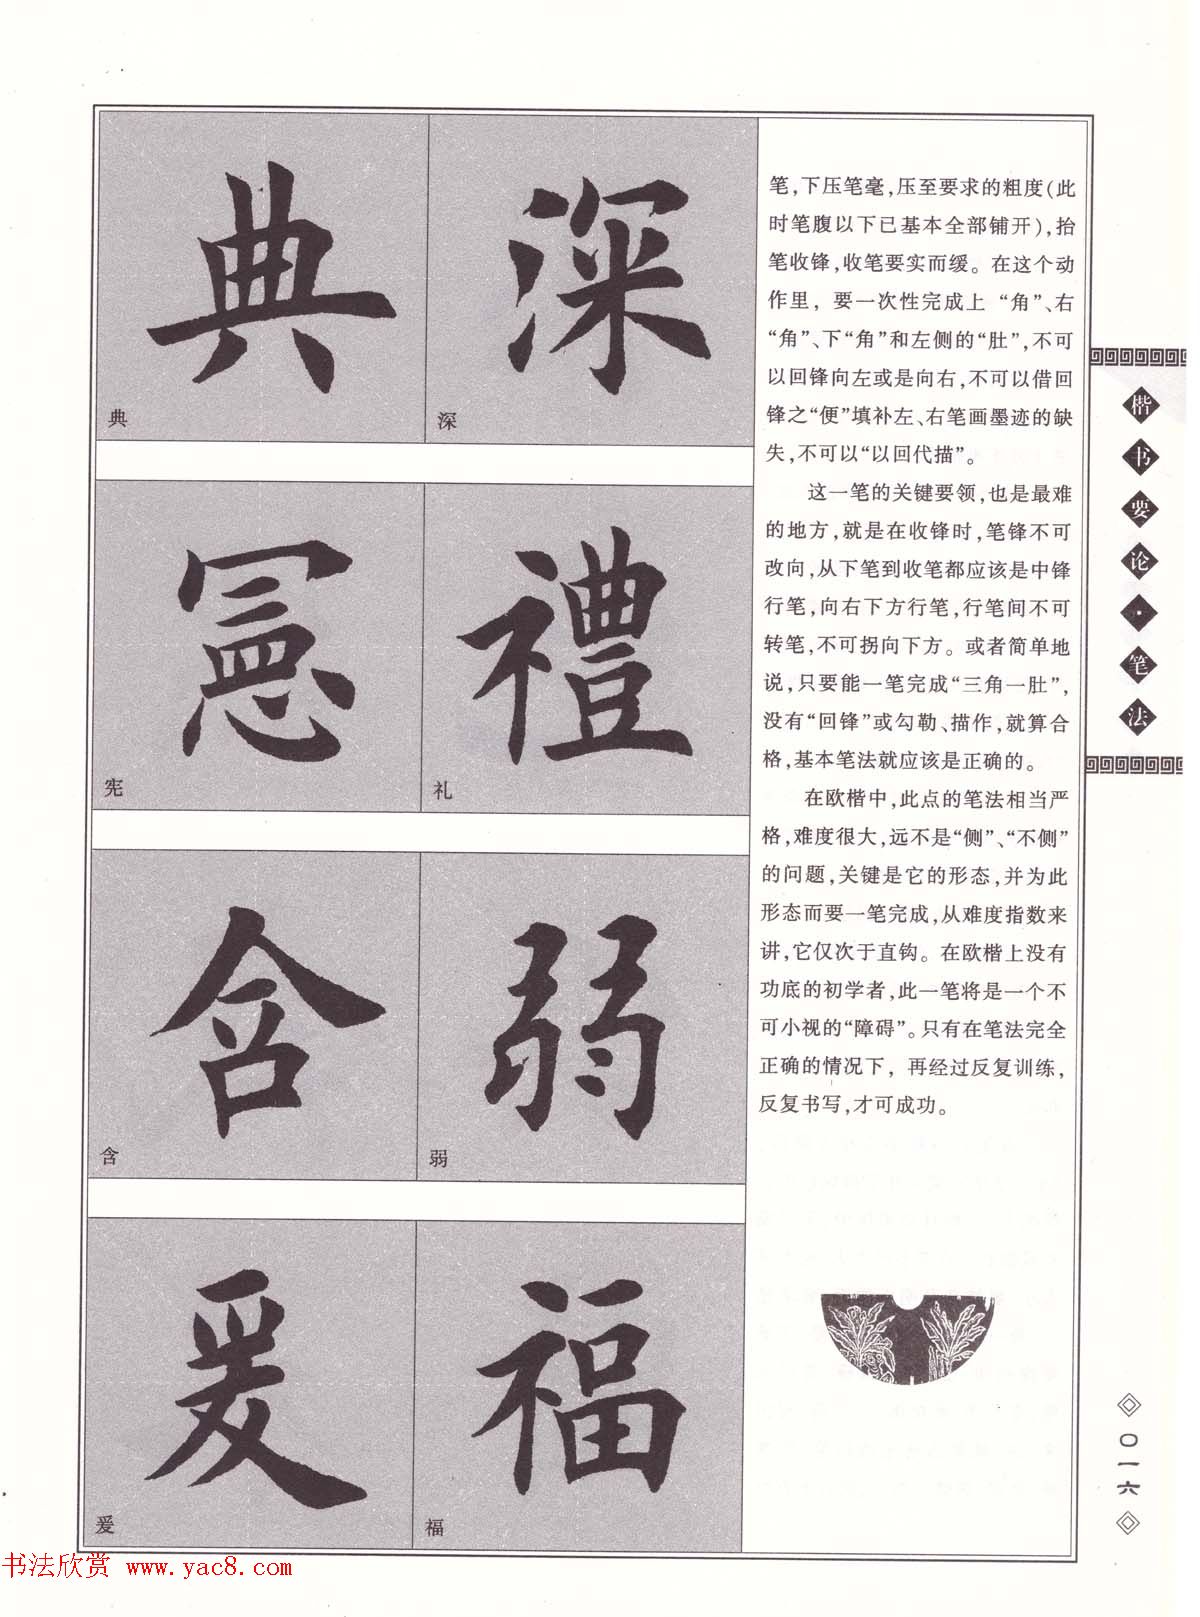 笔,下压笔毫,压至要求的粗度(此
时笔腹以下已基本全部铺开),抬
笔收锋,收笔要实而缓。在这个动
作里,要一次性完成上“角”、右
“角”、下“角”和左侧的“肚”,不可
以回锋向左或是向右,不可以借回
锋之“便”填补左、右笔画墨迹的缺
失,不可以“以回代描”。
这一笔的关键要领,也是最难
的地方,就是在收锋时,笔锋不可
改向,从下笔到收笔都应该是中锋
行笔,向右下方行笔,行笔间不可
转笔,不可拐向下方。或者简单地
说,只要能一笔完成“三角一肚”,
没有“回锋”或勾勒、描作,就算合
格,基本笔法就应该是正确的。
在欧楷中,此点的笔法相当严
格,难度很大,远不是“侧”、“不侧”
的问题,关键是它的形态,并为此
形态而要一笔完成,从难度指数来
讲,它仅次于直钩。在欧楷上没有
功底的初学者,此一笔将是一个不
可小视的“障碍”。只有在笔法完全
正确的情况下,再经过反复训练,
反复书写,才可成功。
深
深
典
典
禮
礼
憲
宪
弱
弱
含
含
福
福
爰
爰
楷书要论·笔法
〇一六
书法欣赏 www.yac8.com